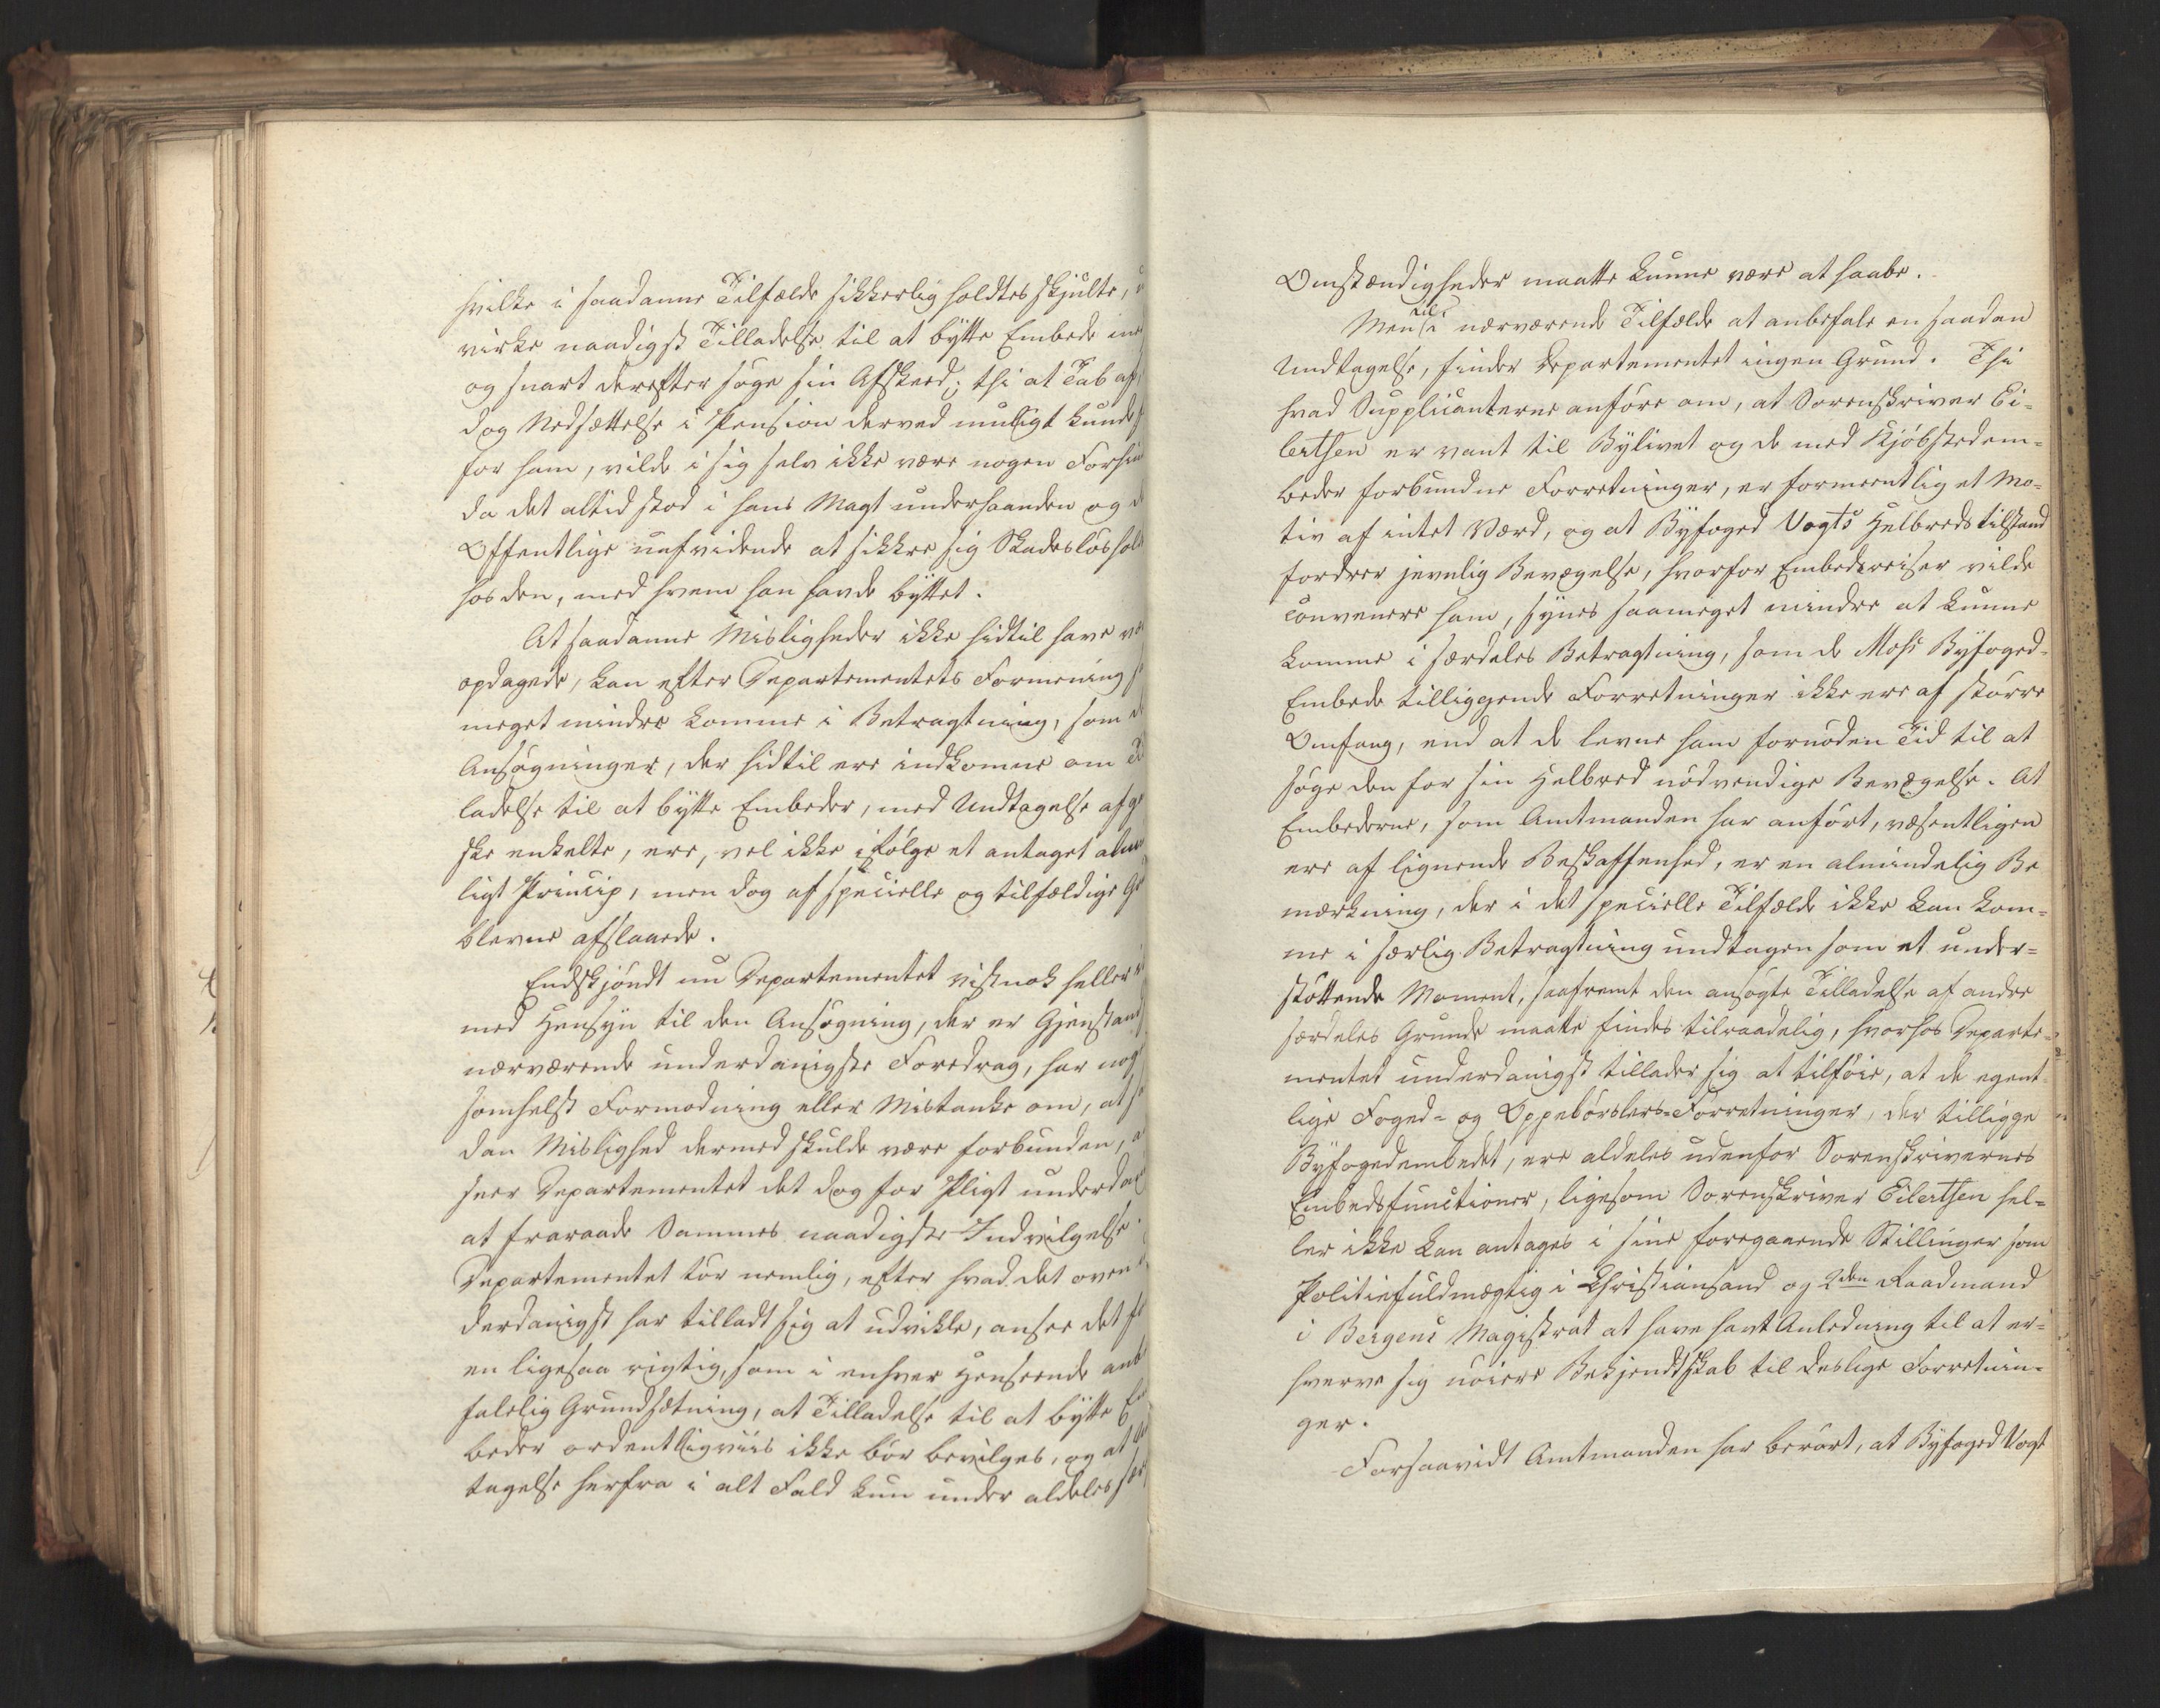 hvilke i saadanne Tilfælde sikkerlig holdtes skjulte,
virke naadigst Tilladelse til at bytte Embede
og snart derefter søge sin Afskeed; thi at Tab af
dog Nedsættelse i Pension derved muligt kunde
for ham, vilde i sig selv ikke være nogen
da det altid stod i hans Magt underhaanden og
Offentlige uafvidende at sikkre sig
hos den, med hvem han havde byttet.
At saadanne Misligheder ikke hidtil have
opdagede, kan efter Departementets Formening
meget mindre komme i Betragtning, som
Ansøgninger, der hidtil ere indkomne om
ladelse til at bytte Embeder, med Undtagelse af
ske enkelte, ere, vel ikke ifølge et antaget
ligt Princip, men dog af specielle og tilfældige
blevne afslaaede.
Endskjøndt nu Departementet vistnok heller
med Hensyn til den Ansøgning, der er
nærværende underdanigste Foredrag, har
somhelst Formodning eller Mistanke om, at
dan Mislighed dermed skulde være forbunden,
seer Departementet det dog for Pligt
at fraraade Sammes naadigste Indvilgelse.
Departementet tør nemlig, efter hvad det oven
derdanigst har tilladt sig at udvikle, ansee det
en ligesaa rigtig, som i enhver Henseende
falelig Grundsætning, at Tilladelse til at bytte
beder ordentligviis ikke bør bevilges, og at
tagelse herfra i alt Fald kun under aldeles
Omstændigheder maatte kunne være at haabe.
Men til i nærværende Tilfælde at anbefale en saadan
Undtagelse, finder Departementet ingen Grund. Thi
hvad Supplicanterne anføre om, at Sorenskriver Ei-
lertsen er vant til Bylivet og de med Kjøbstedem-
beder forbundne Forretninger, er formeentlig et Mo-
tiv af intet Værd, og at Byfoged Vogts Helbredstilstand
fordrer jevnlig Bevægelse, hvorfor Embedsreiser vilde
convenere ham, synes saameget mindre at kunne
komme i særdeles Betragtning, som de Moss Byfoged-
Embede tilliggende Forretninger ikke ere af større
Omfang, end at de levne ham fornøden Tid til at
søge den for sin Helbred nødvendige Bevægelse. At
Embederne, som Amtmanden har anført, væsentligen
ere af lignende Beskaffenhed, er en almindelig Be
mærkning, der i det specielle Tilfælde ikke kan kom-
me i særlig Betragtning undtagen som et under-
støttende Moment, saafremt den ansøgte Tilladelse af andre
særdeles Grunde maatte findes tilraadelig, hvorhos Departe-
mentet underdanigst tillader sig at tilføie, at de egent-
lige Foged- og Oppebørslers-Forretninger, der tilligge
Byfogedembedet, ere aldeles udenfor Sorenskrivernes
Embedsfunctioner, ligesom Sorenskriver Eilertsen hel-
ler ikke kan antages i sine foregaaende Stillinger som
Politiefuldmægtig i Christiansand og 2den Raadmand
i Bergens Magistrat at have havt Anledning til at er-
hverve sig nøiere Bekjendtskab til deslige Forretnin-
ger.
Forsaavidt Amtmanden har berørt, at Byfoged Vogt